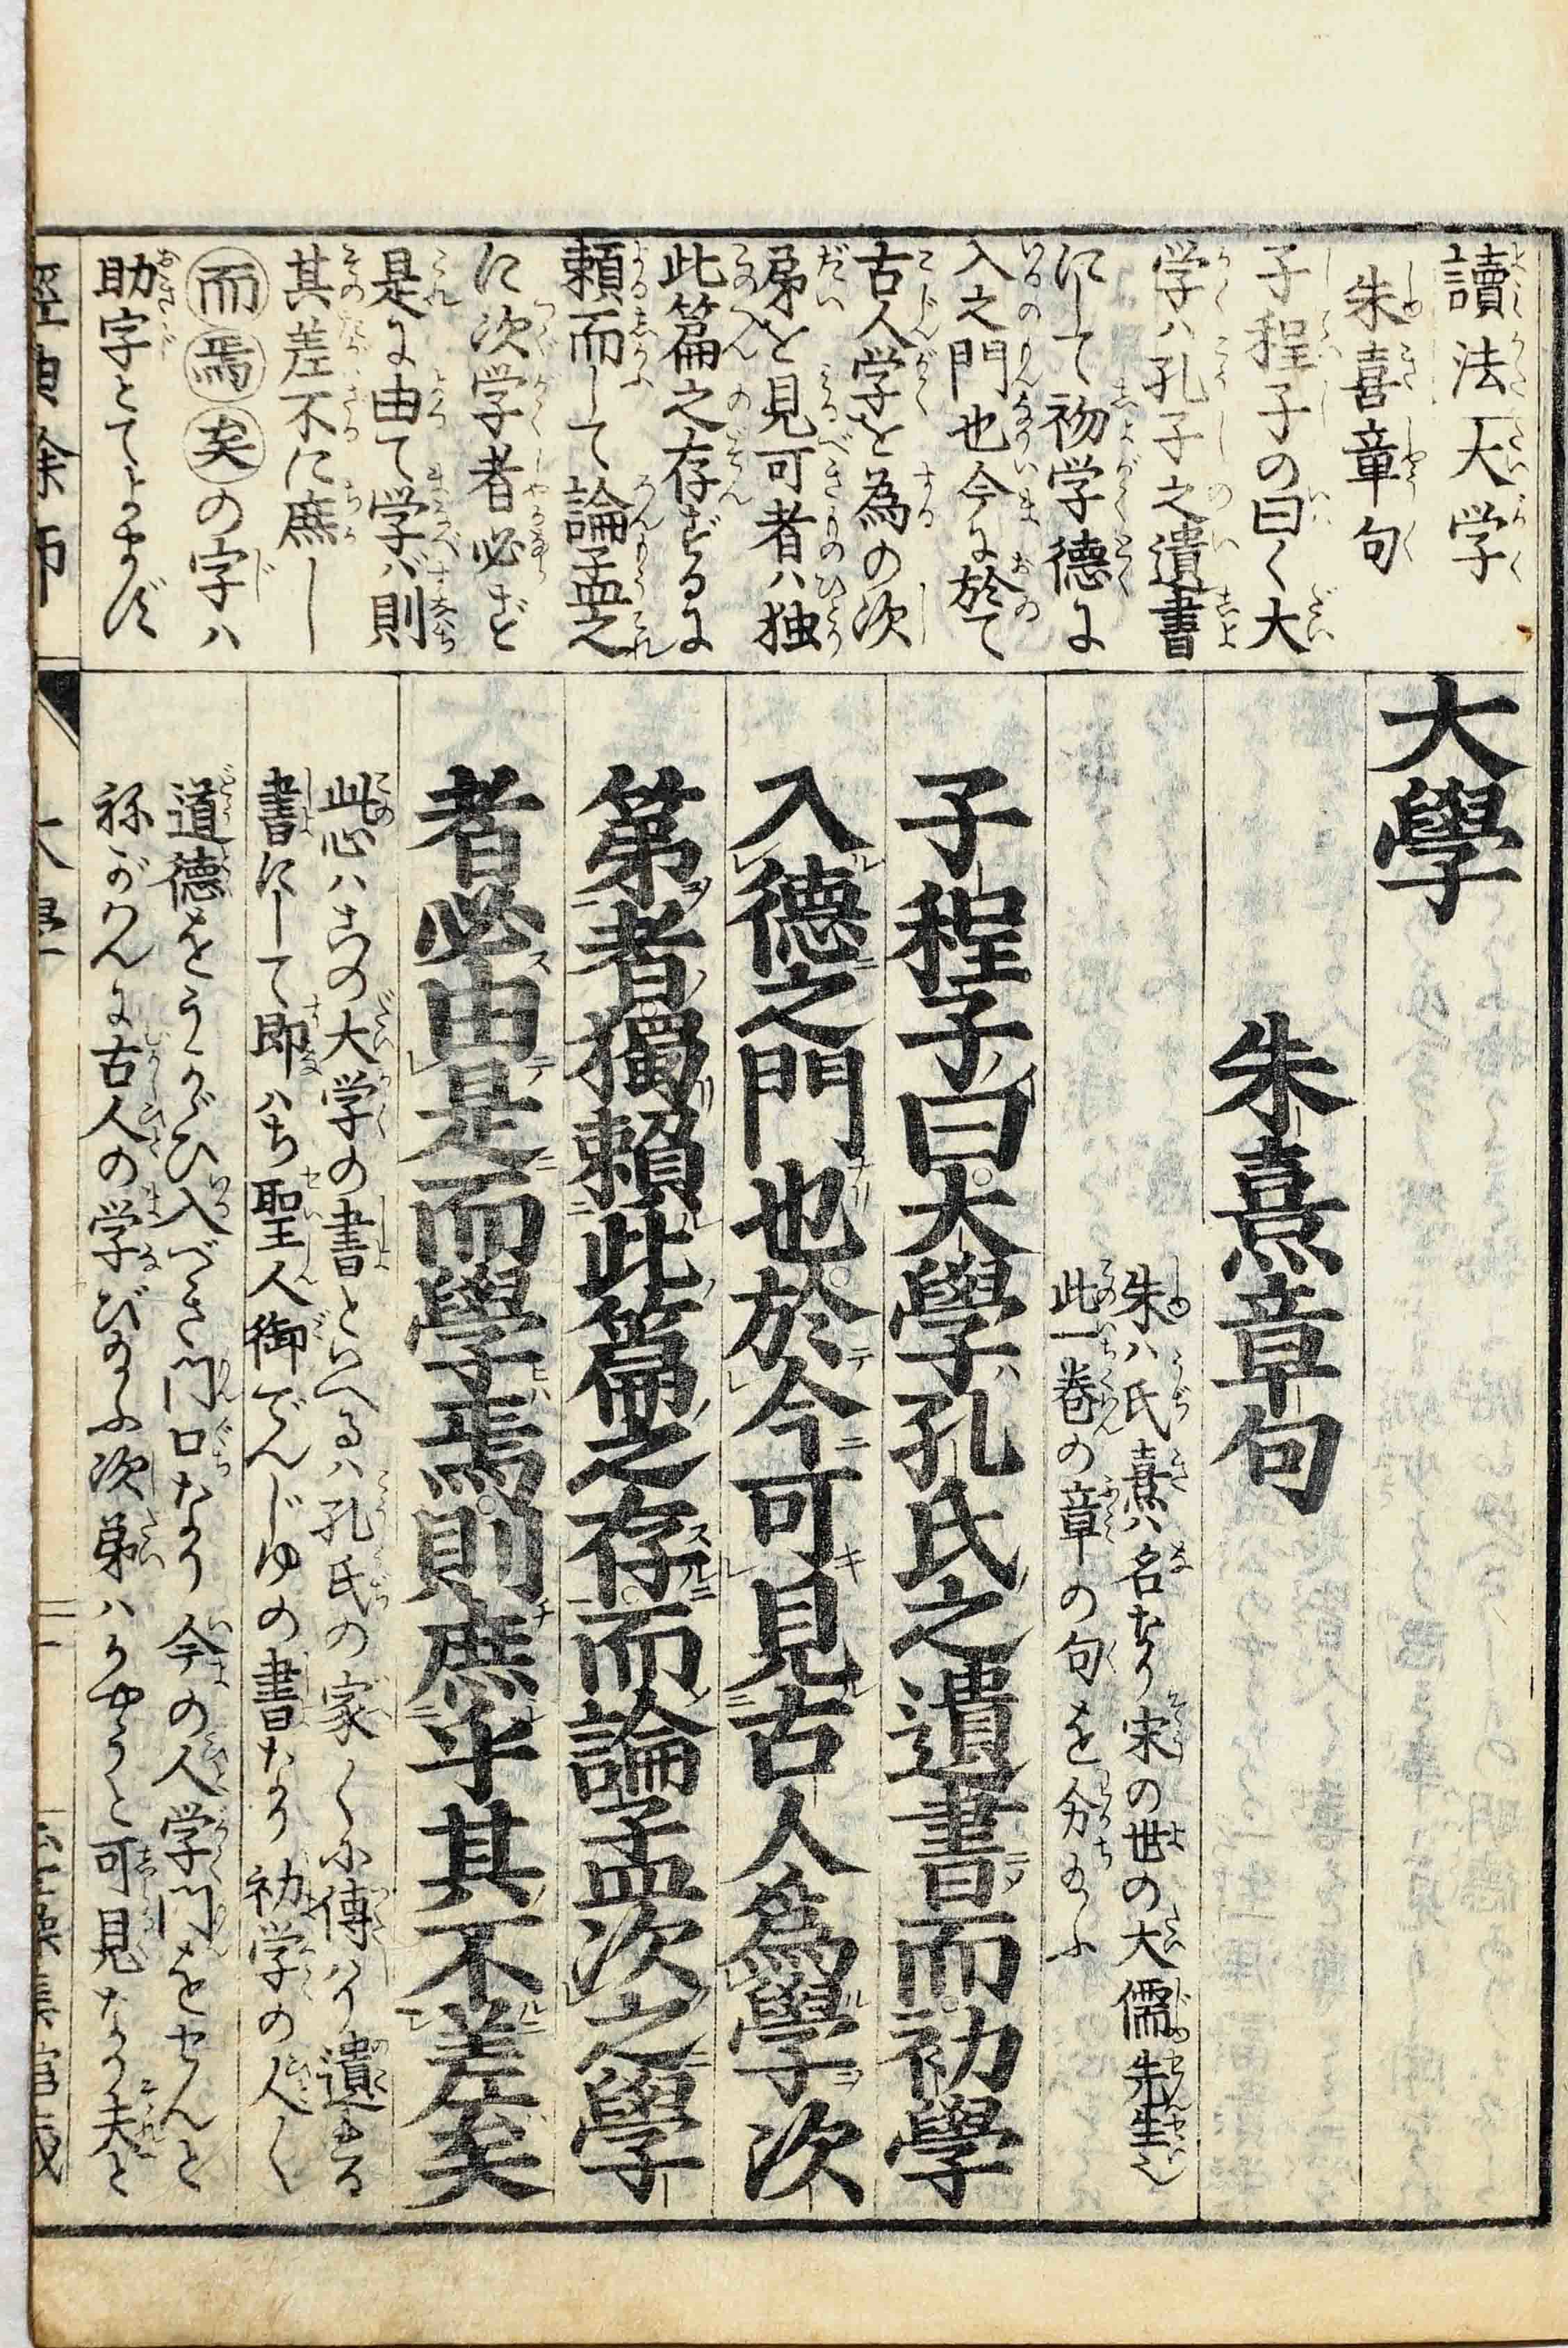 讀法大学
朱喜章句
子程子の曰く大
学ハ孔子之遺書
にして初学徳に
入之門也今に於て
古人学を為の次
第を見可者ハ独
此篇之存ざるに
頼而して論孟之
に次学者必ざと
是に由て学バ則
其差不に庶し
而焉矣の字ハ
助字とてよまず
大學
朱熹章句
朱ハ氏熹ハ名なり宋の世の大儒先生也
此一巻の章の句を分給ふ
子程子曰大學孔氏之遺書而初學
入德之門也於今可見古人爲學次
第者獨賴此篇之存而論孟次之學
者必由是而學焉則庶乎其不差矣
此心ハこの大学の書といへるハ孔氏の家〱に傳ハり遺れる
書にして即ハち聖人御でんじゆの書なり初学の人〱
道徳をうかゞひ入べき門口なり今の人学門をせんと
ねがハんに古人の学び給ふ次第ハかやうと可見なり夫を
經典余師
大學
二